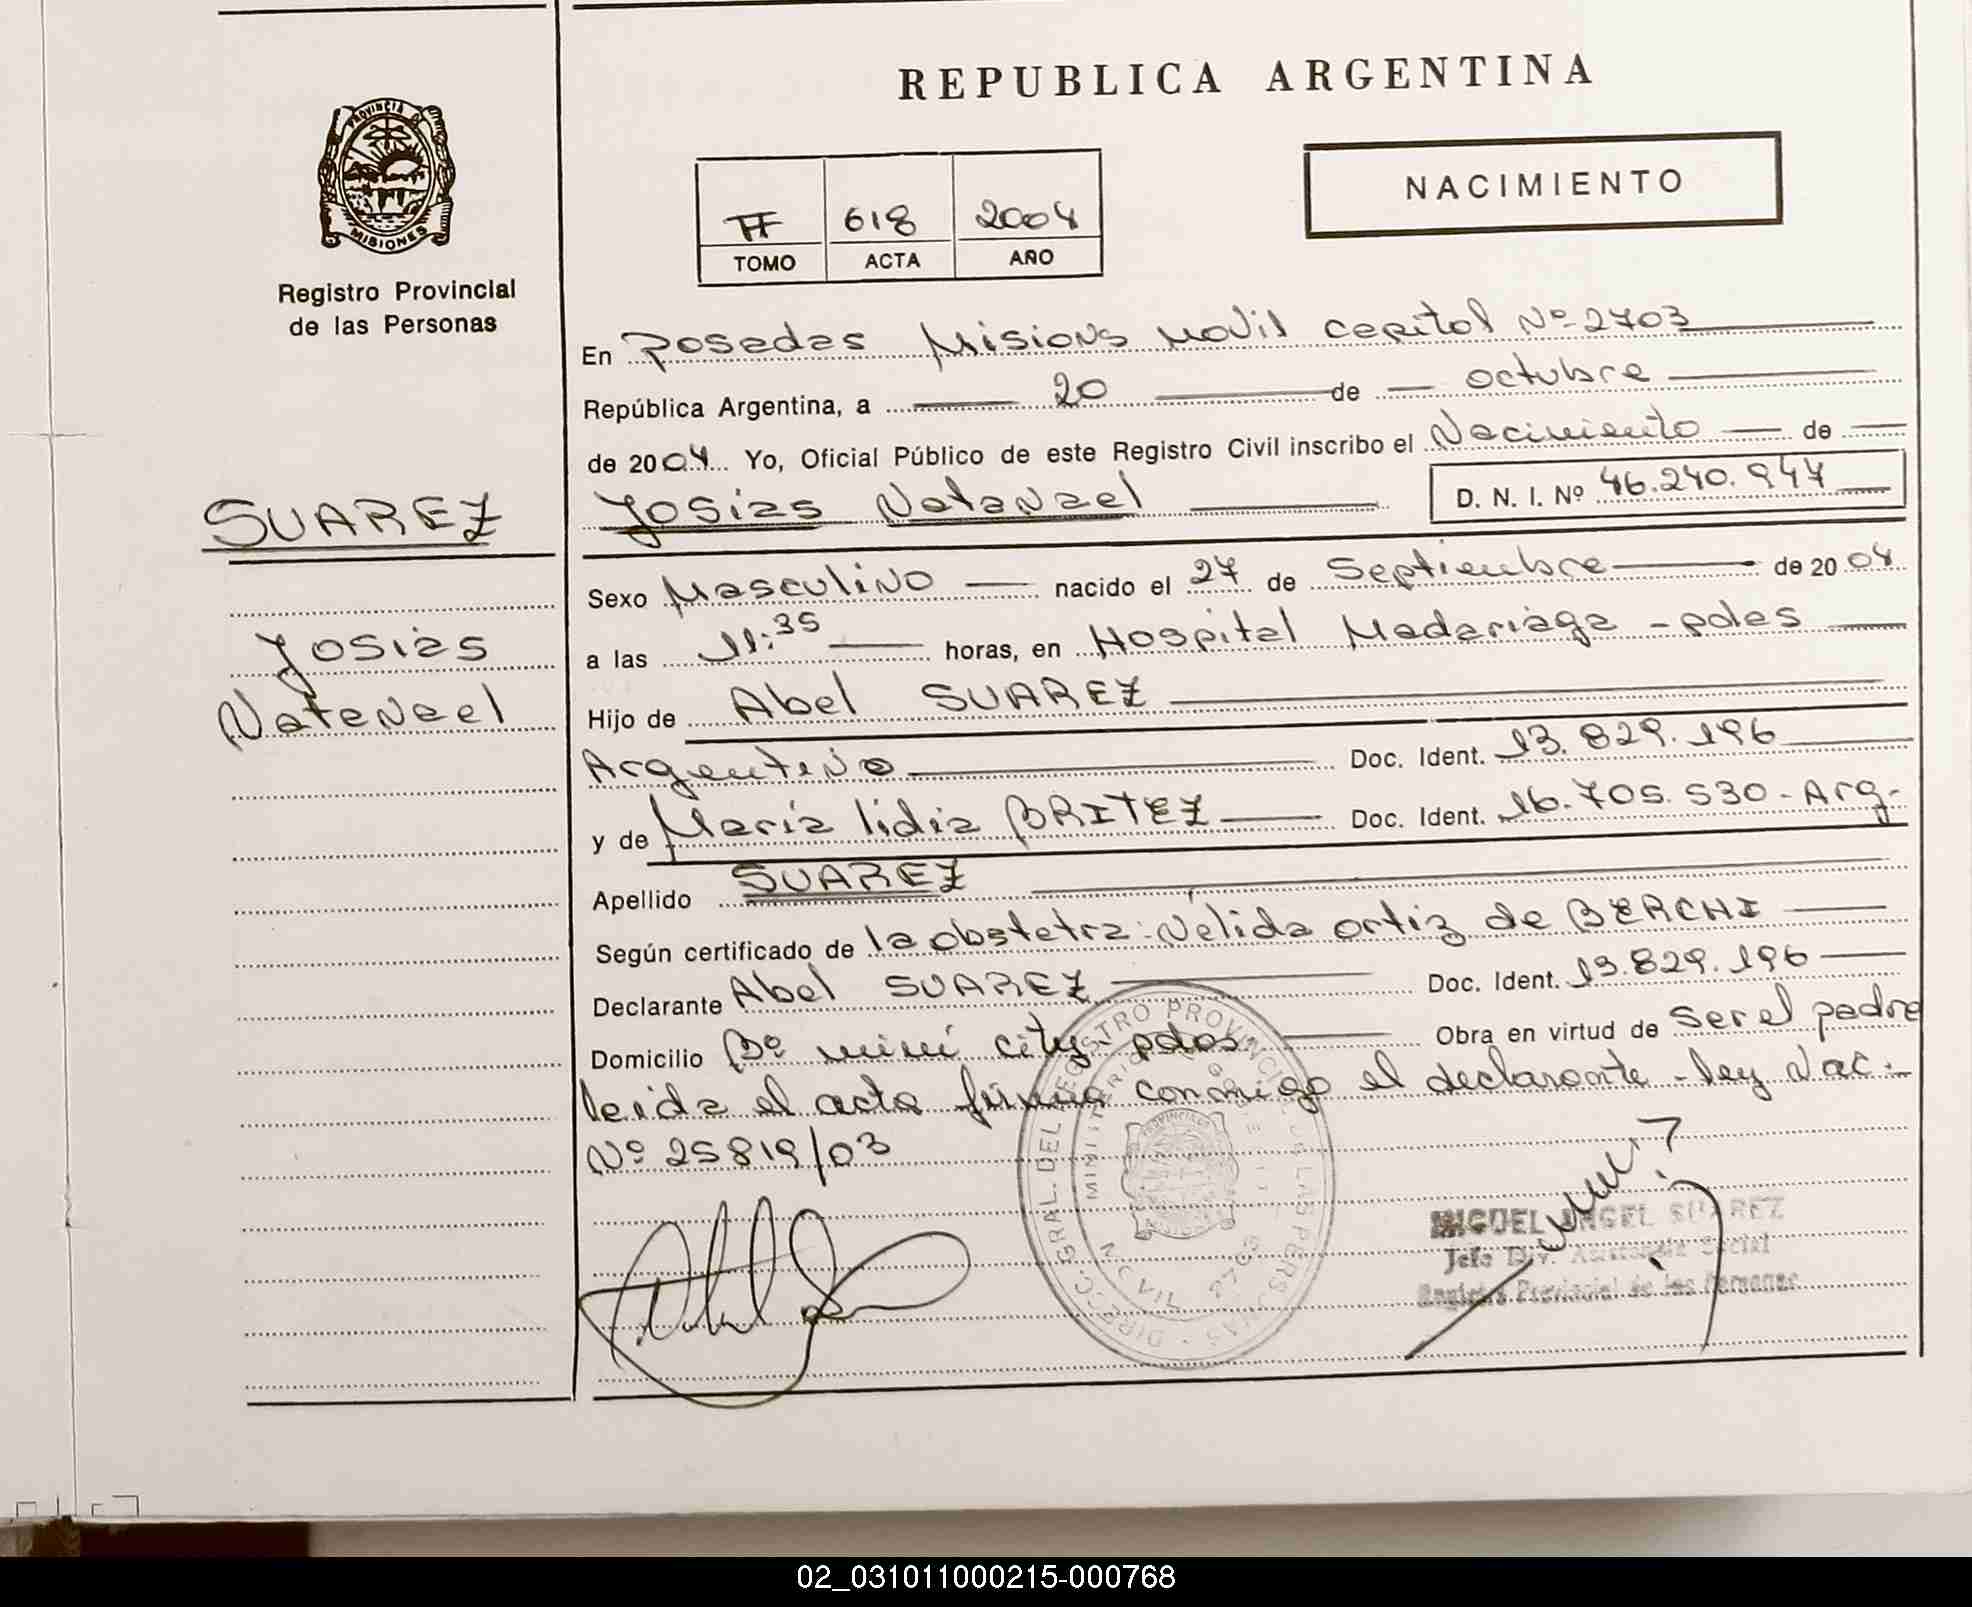 REPUBLICA ARGENTINA
NACIMIENTO
PROVINCIA DE
MISIONES
Registro Provincial
de las Personas
II 618 2004
TOMO ACTA AÑO
En Posadas Misions Movil Capital Nº 2703
República Argentina, a 20 de octubre
de 2004 Yo, Oficial Público de este Registro Civil inscribo el Nacimiento de
Josias Natanael D. N. I. Nº 46.240.947
SUAREZ
Josias
Natanael
Sexo Masculino nacido el 27 de Septiembre de 2004
a las 11:35 horas, en Hospital Madariaga - pdas
Hijo de Abel SUAREZ
Argentino Doc. Ident. 13.829.196
y de María lidia BRITEZ Doc. Ident. 16.705.530 - Arg -
Apellido SUAREZ
Según certificado de la obstetra: Nélida ortiz de BERCHI
Declarante Abel SUAREZ Doc. Ident. 13.829.196
Domicilio Bº mini city pdas Obra en virtud de Ser el padre
leida el acta firma conmigo el declarante - ley Nac.
Nº 25819/03
DIRECC. GRAL. DEL REGISTRO PROVINCIAL DE LAS PERSONAS
MIGUEL ANGEL SUAREZ
Jefe Div. Asistencia Social
Registro Provincial de las Personas
02_031011000215-000768